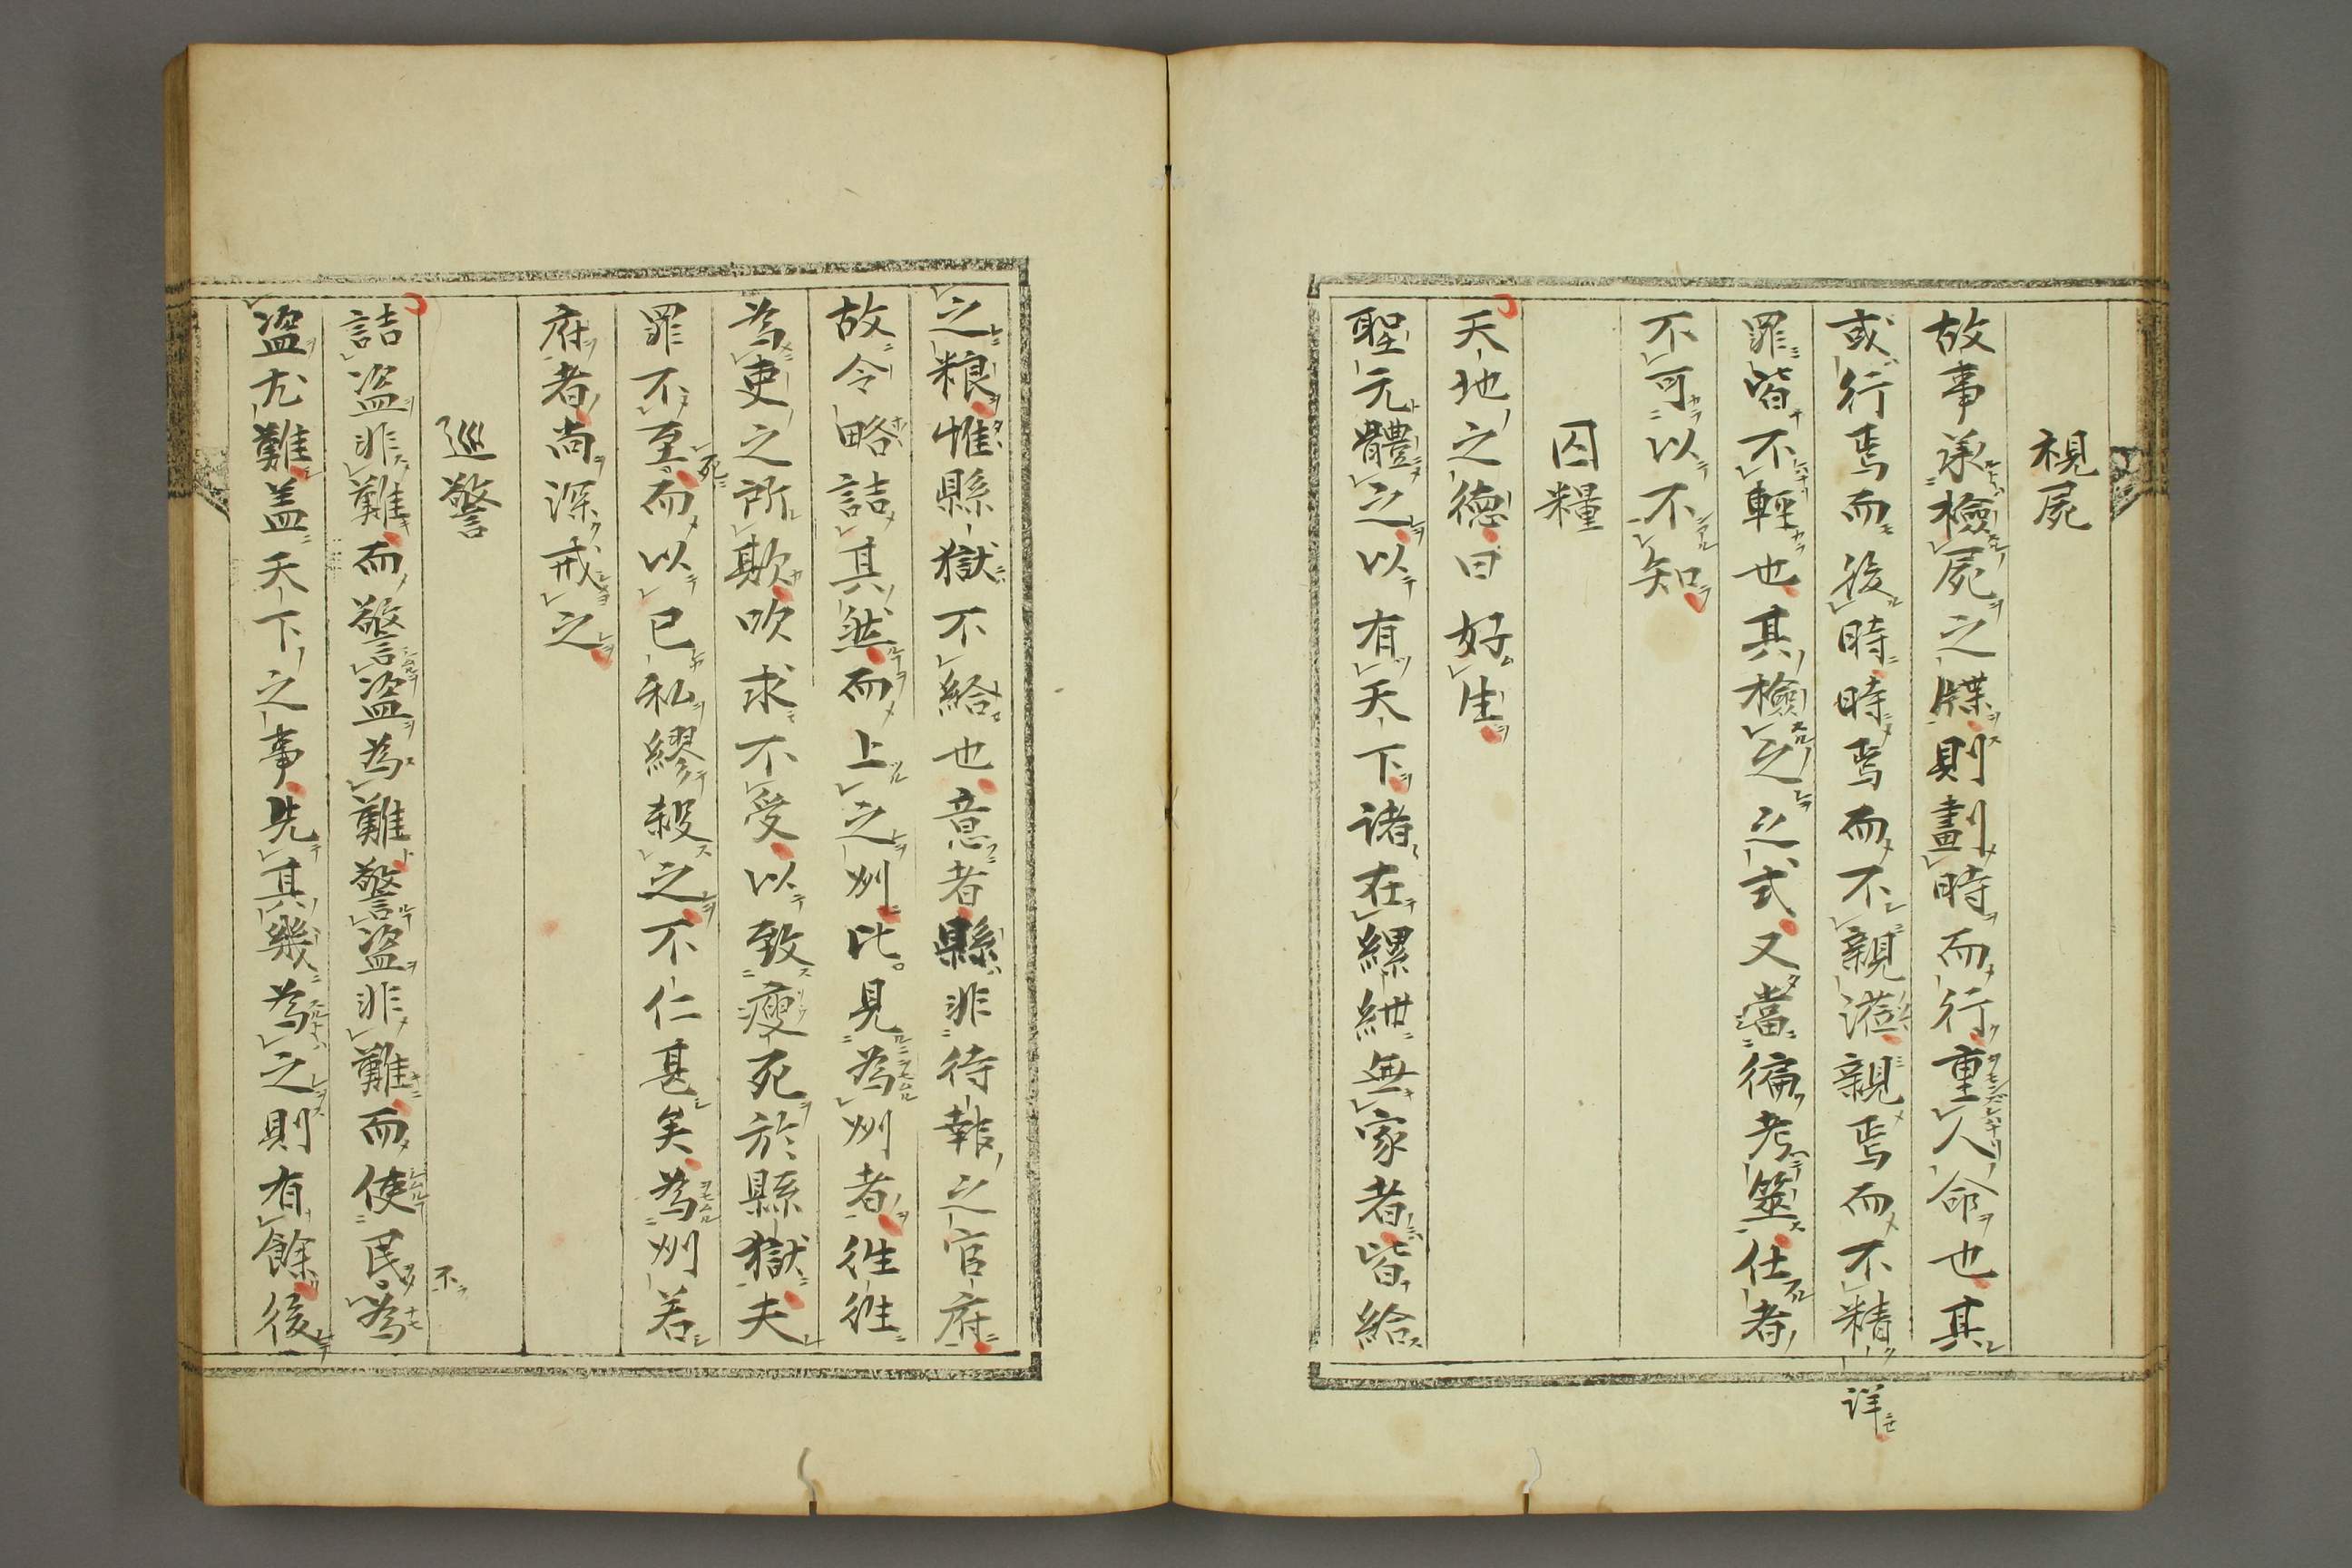 視屍
故事承檢屍之牒則劃時而行重人命也其
或行焉而後時時焉而不親涖親焉而不精詳
罪皆不輕也其檢之之式又當徧考筮仕者
不可以不知
囚糧
天地之徳曰好生
聖元體之以有天下諸在縲紲無家者皆給
之粮惟縣獄不給也意者縣非待報之官府
故令略詰其然而上之州比見為州者徃徃
為吏之所欺吹求不受以致瘦死於縣獄夫
罪不至死而以已私繆殺之不仁甚矣為州若
府者尚深戒之
巡警
詰盗非難而警盗為難警盗非難而使民不為
盗尤難盖天下之事先其幾為之則有餘後